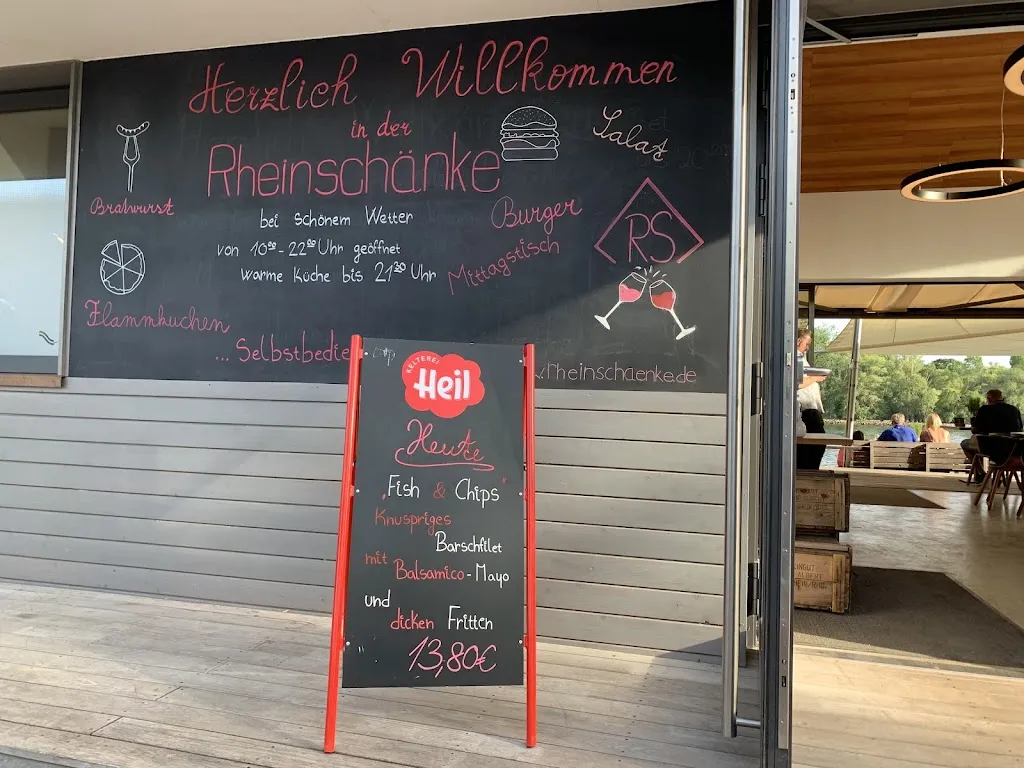 Herzlich Willkommen
in der
Rheinschänke
bei schönem Wetter
von 10⁰⁰-22⁰⁰ Uhr geöffnet
warme Küche bis 21³⁰ Uhr
Bratwurst
Flammkuchen
... Selbstbedie
Burger
Mittagstisch
Salat
RS
.rheinschaenke.de
KELTEREI
Heil
Heute
„Fish & Chips"
Knuspriges
Barschfilet
mit Balsamico-Mayo
und
dicken Fritten
13,80€